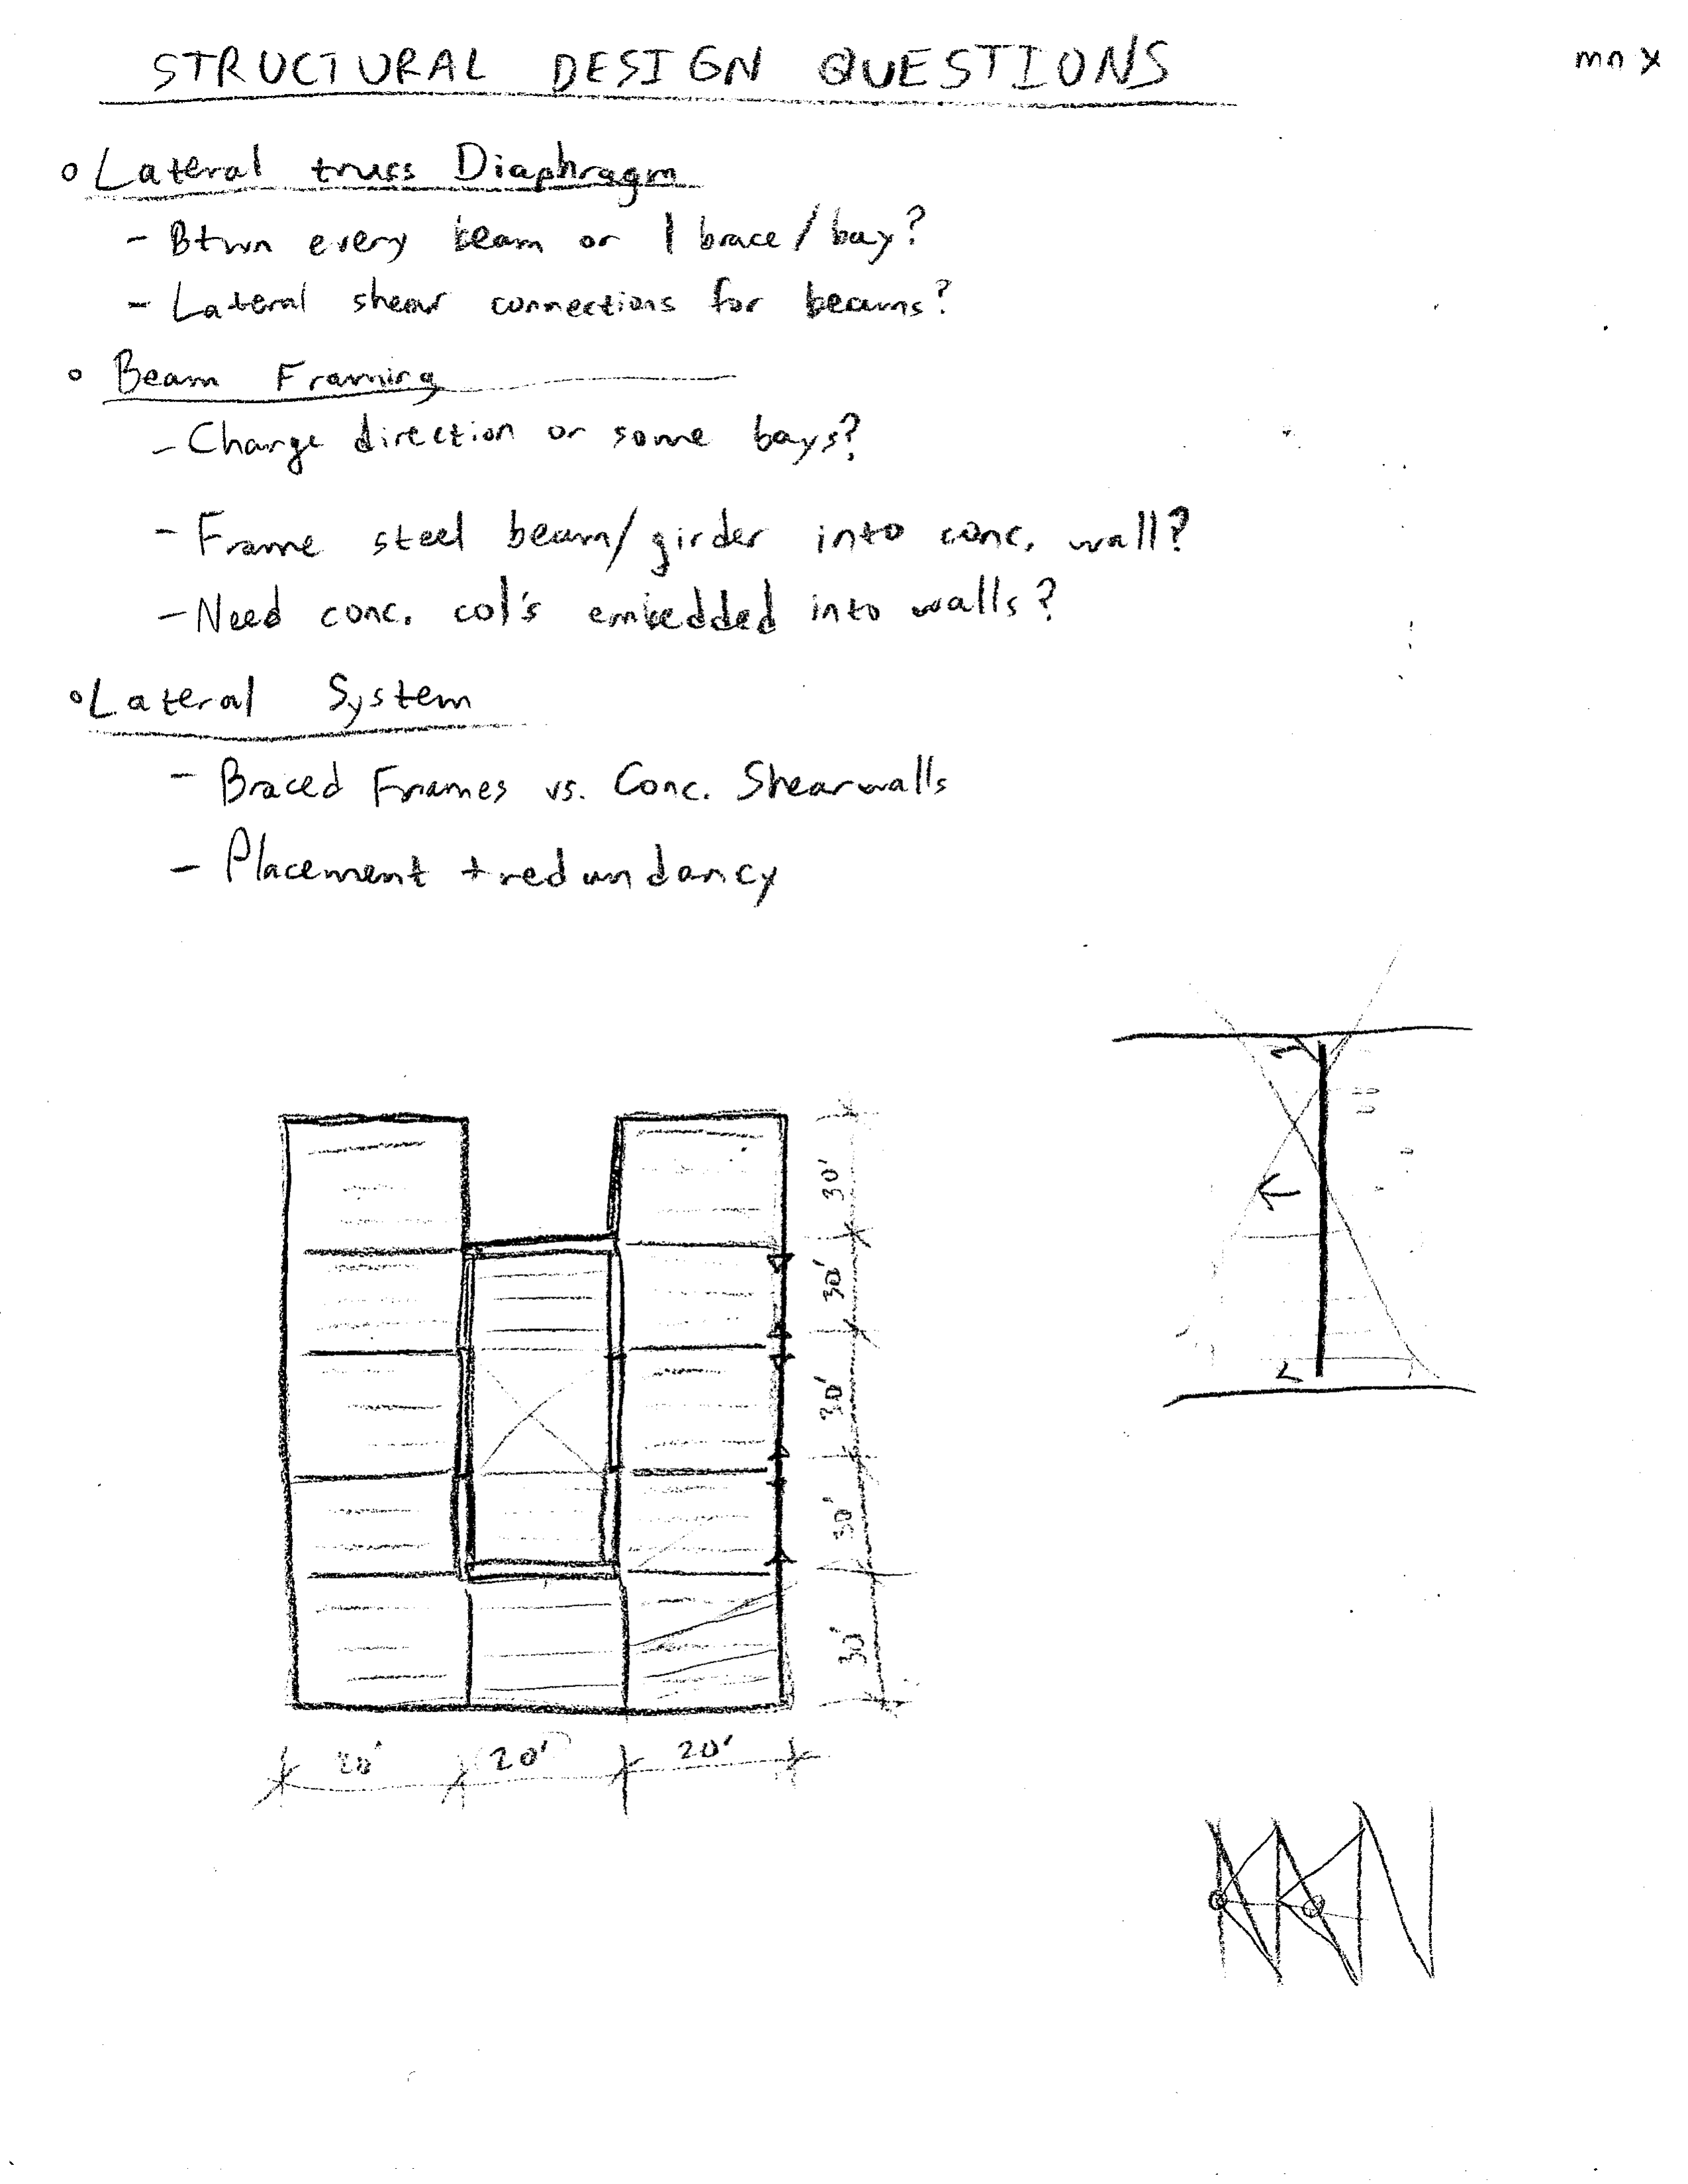 STRUCTURAL DESIGN QUESTIONS
o Lateral truss Diaphragm
- Btwn every beam or 1 brace/bay?
- Lateral shear connections for beams?
o Beam Framing
- Change direction or some bays?
- Frame steel beam/girder into conc. wall?
- Need conc. col's embedded into walls?
o Lateral System
- Braced Frames vs. Conc. Shearwalls
- Placement + redundancy
30'
30'
30'
30'
30'
20' 20' 20'